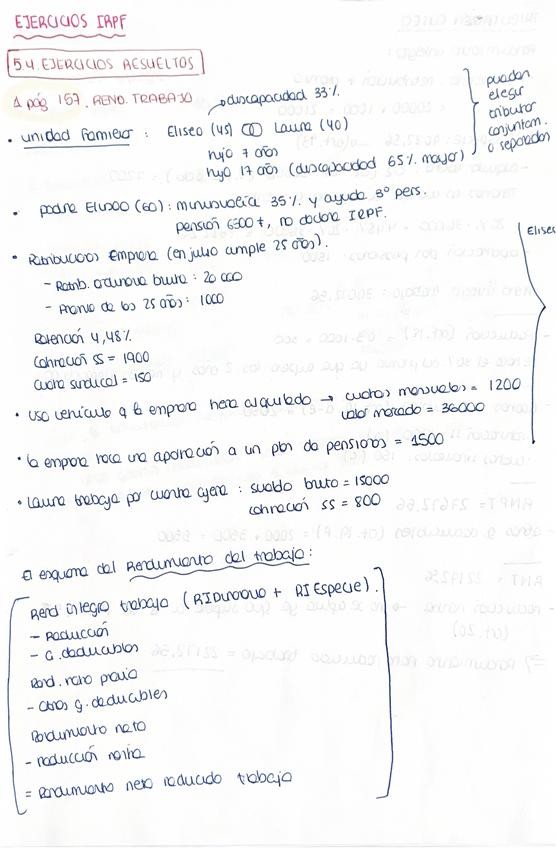 EJERCICIOS IRPF
5.4. EJERCICIOS RESUELTOS
1 pág 157. REND. TRABAJO
→ discapacidad 33%
• unidad familiar : Eliseo (45) Laura (40)
hijo 7 años
hijo 17 años (discapacidad 65% mayor)
pueden
elegir
tributar
conjuntam.
o separados
• padre Eliseo (60) : minusvalía 35% y ayuda 3ª pers.
pensión 6500 €, no declara IRPF.
• Retribuciones Empresa (en julio cumple 25 años).
- Retrib. ordinaria bruta : 20 000
- Premio de los 25 años : 1000
Retención 4,48%
Cotización SS = 1900
Cuota sindical = 150
• uso vehículo q la empresa tiene alquilado → cuotas mensuales = 1200
valor mercado = 36000
• la empresa hace una aportación a un plan de pensiones = 1500
Eliseo
• Laura trabaja por cuenta ajena : sueldo bruto = 15000
cotización SS = 800
El esquema del Rendimiento del trabajo :
Rend íntegro trabajo (RIDinerario + RIEspecie).
- Reducción
- G. deducibles
Rend. neto previo
- Otros g. deducibles
Rendimiento neto
- reducción norma
= Rendimiento neto reducido trabajo